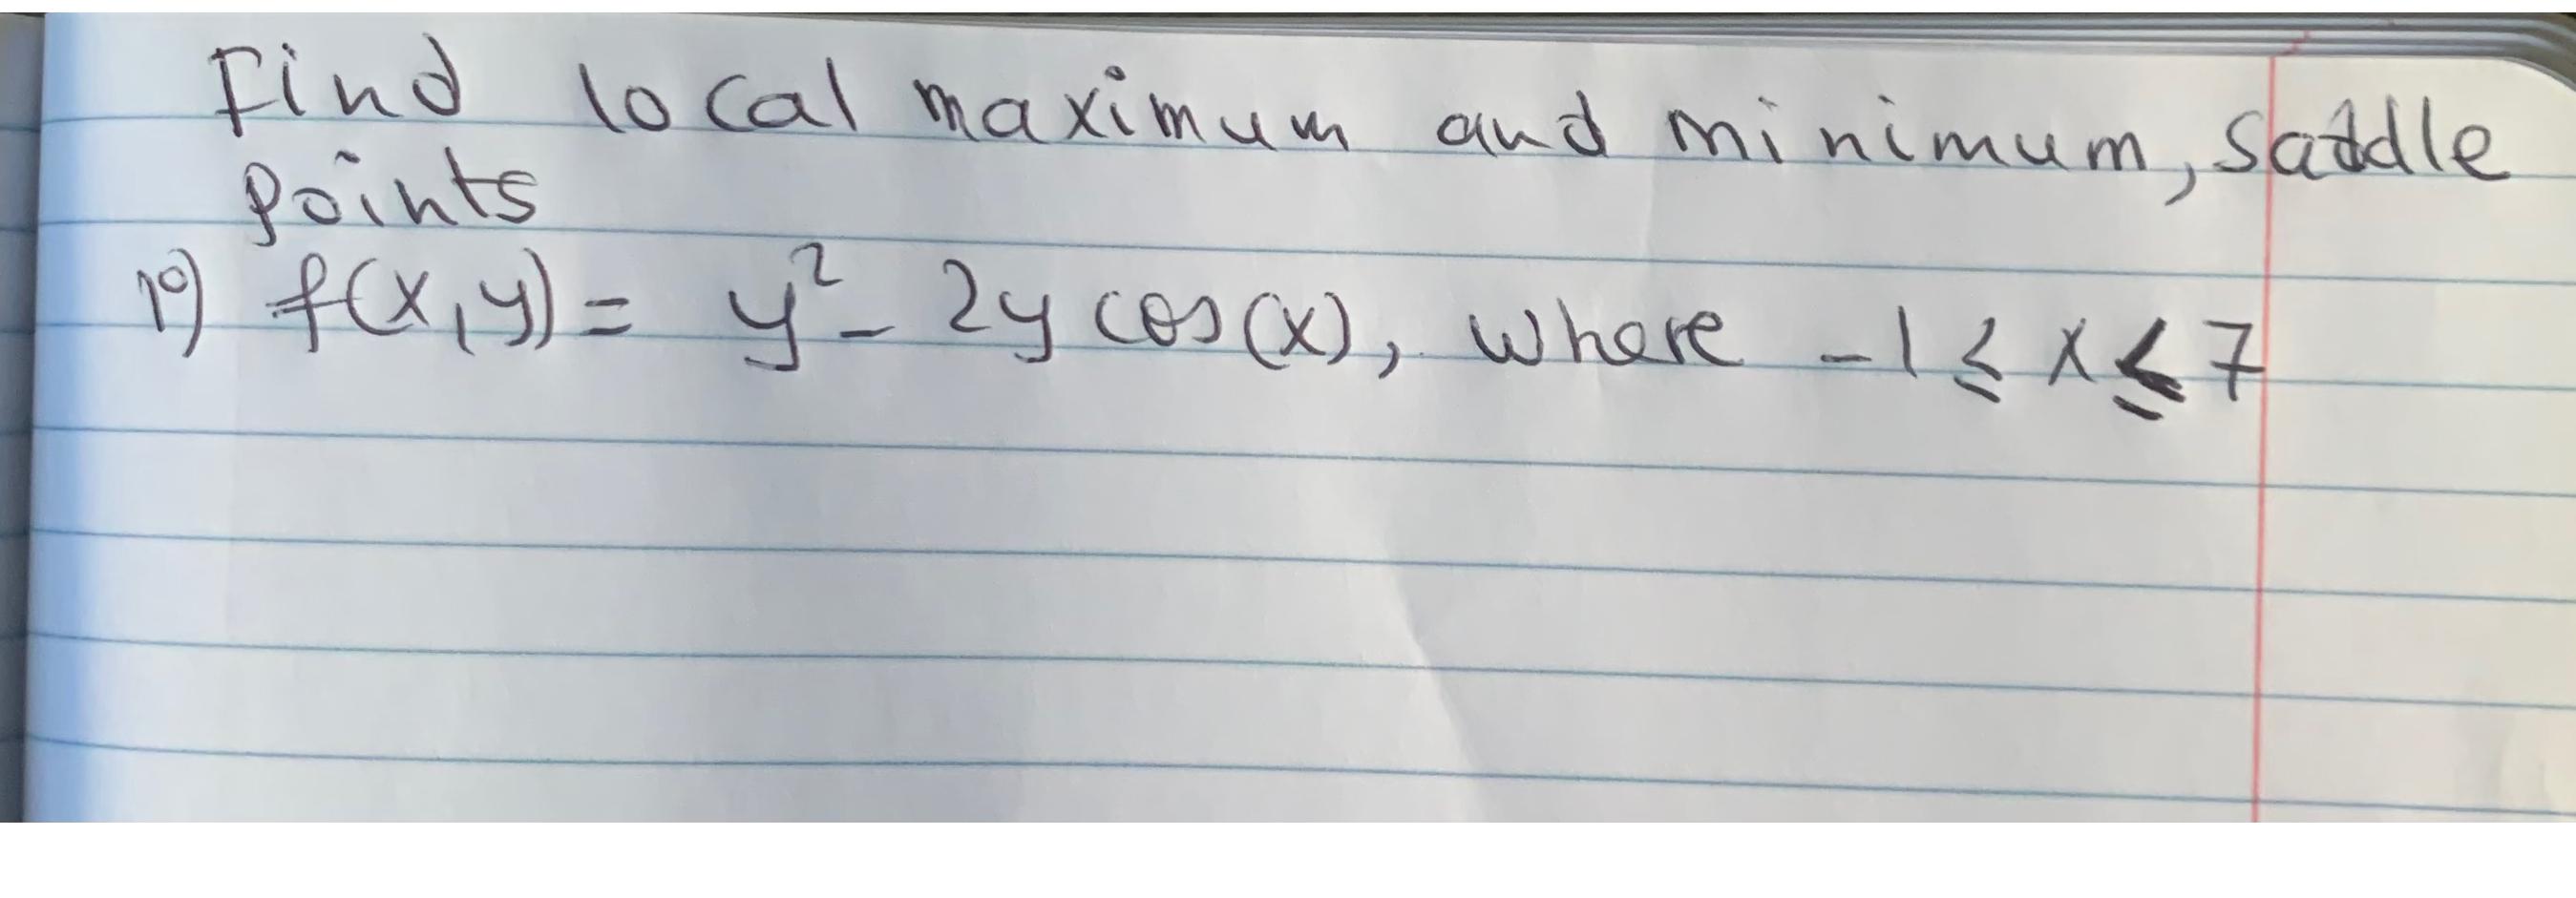 Find local maximum and minimum, saddle
points
1º) f(x,y) = y² - 2y cos(x), where -1 ≤ x ≤ 7